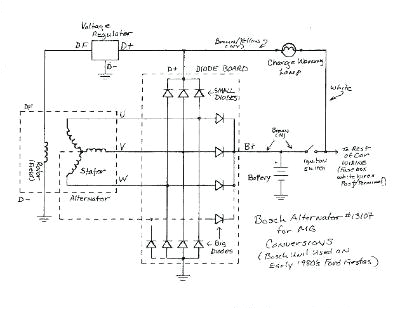 Voltage
Regulator
DF
D+
D-
Brown/Yellow
(NY)
Charge Warning
Lamp
D+
DIODE BOARD
SMALL
Diodes
White
DF
U
Rotor
(Field)
Stator
V
W
B+
Brown
(N)
Ignition
Switch
To Rest
of Car
WIRING
(fuse box
Battery
D-
Alternator
Big
Diodes
Bosch Alternator #13107
for MG
Conversions
(Bosch Unit used on
Early 1980's Ford Fiestas)